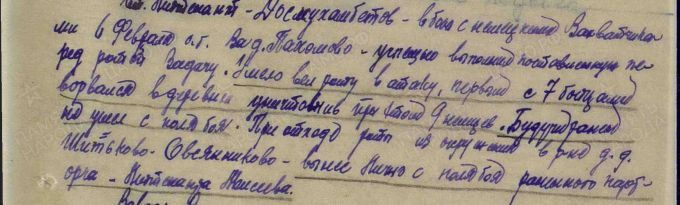 Лейтенант - Досмухамбетов - в бою с немецкими Захватчика
ми 6 Февраля с.г. За д. Пахомово - успешно выполнил поставленную пе
ред ротой Задачу. Умело вел роту в атаку, первым с 7 бойцами
ворвался в деревню уничтожив при этом 9 немцев. Будучи раненой
не ушел с поля боя. При отходе роты из окружения в р-не д.д.
Шитьково - Овсянниково - вынес лично с поля боя раненого парт-
орга - Лейтенанта Моисеева.